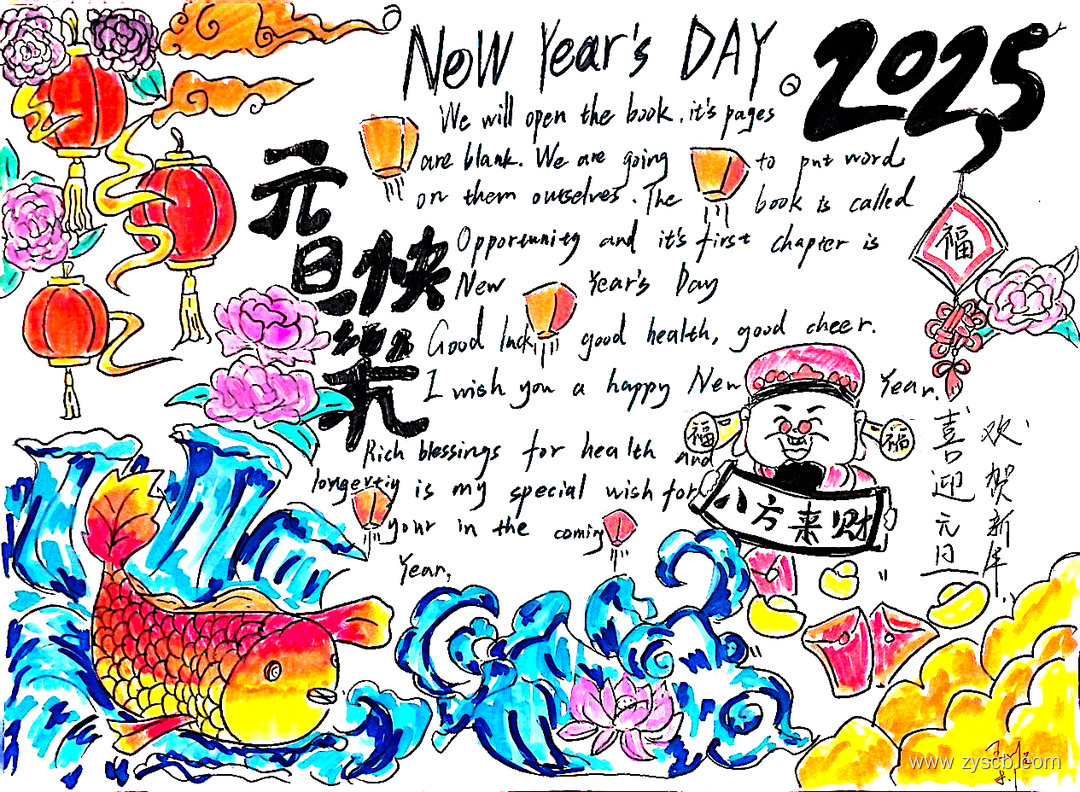 New Year's DAY
2025
We will open the book. it's pages
are blank. We are going to put word
on them ourselves. The book is called
Opportunity and it's first chapter is
New Year's Day
Good luck, good health, good cheer.
I wish you a happy New Year.
Rich blessings for health and
longevtiy is my special wish for
your in the coming
Year.
元旦
快樂
福
福
福
八方来财
欢贺新年
喜迎元旦
www.zyscb.com